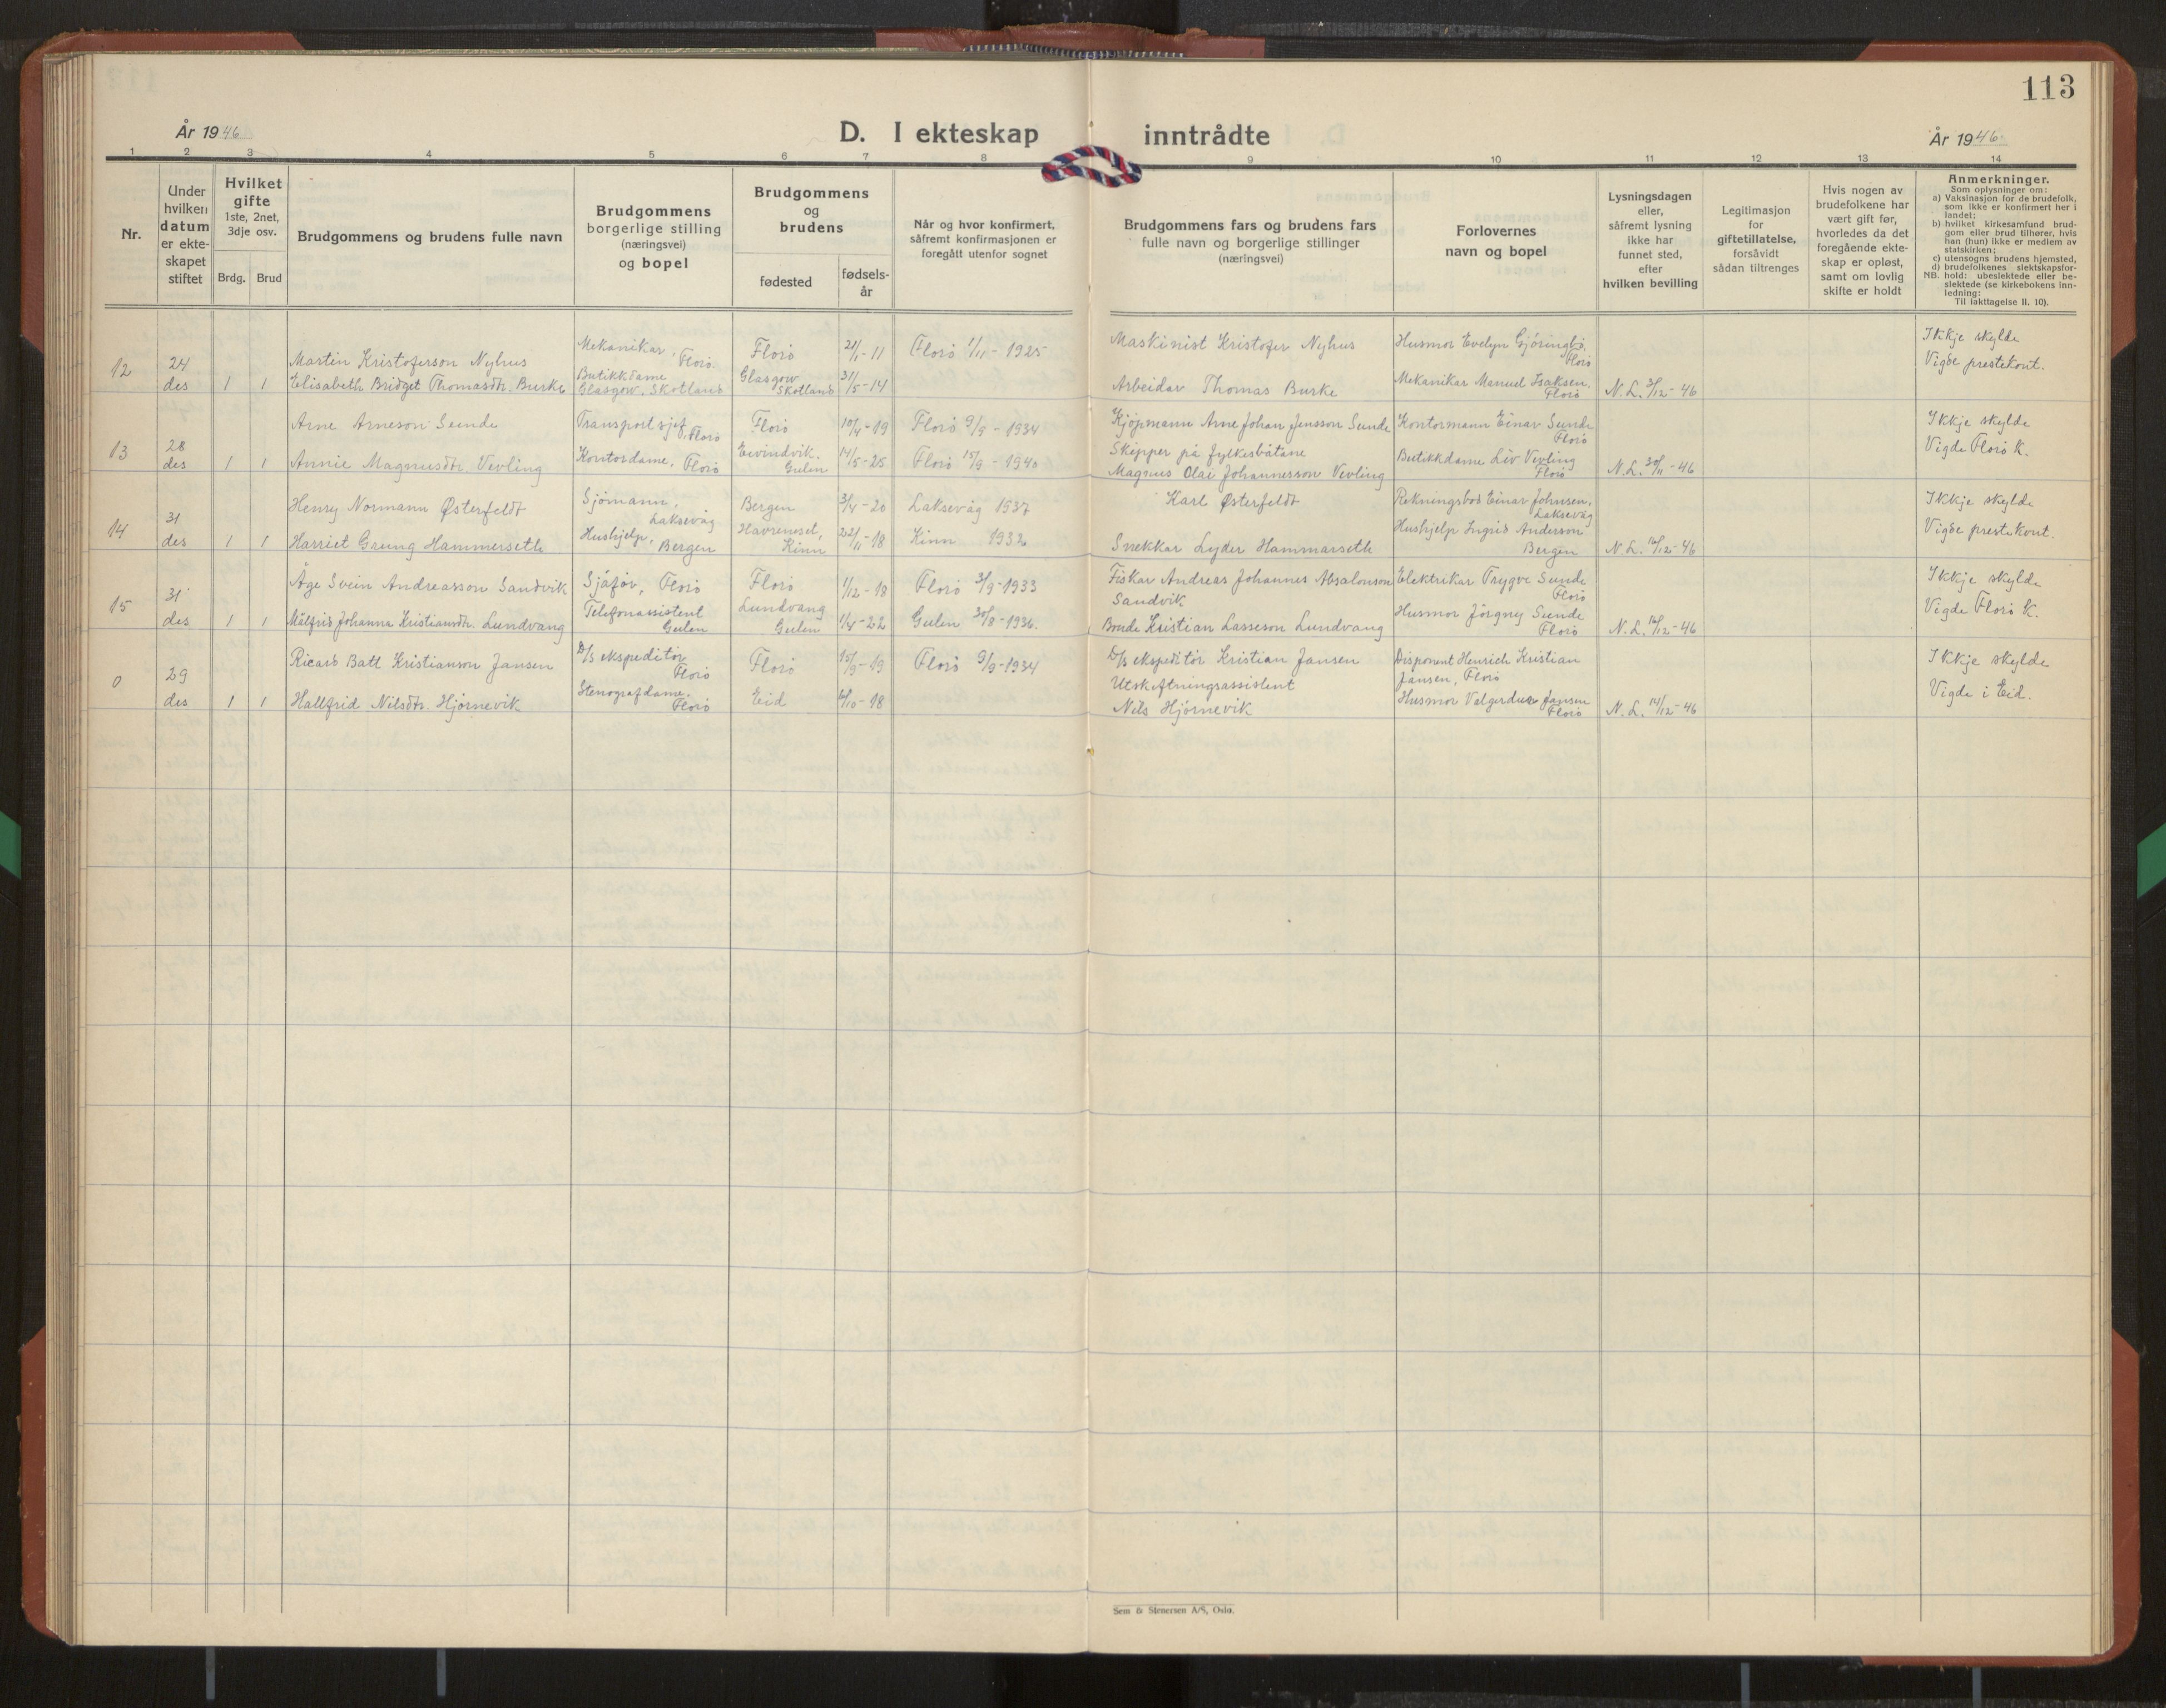 113
År 1946
D. I ekteskap inntrådte
År 1946
1 2 3 4 5 6 7 8 9 10 11 12 13 14
Nr.
Under
hvilken
datum
er ekte-
skapet
stiftet
Hvilket
gifte
1ste, 2net,
3dje osv.
Brdg. Brud
Brudgommens og brudens fulle navn
Brudgommens
borgerlige stilling
(næringsvei)
og bopel
Brudgommens
og
brudens
fødested
fødsels-
år
Når og hvor konfirmert,
såfremt konfirmasjonen er
foregått utenfor sognet
Brudgommens fars og brudens fars
fulle navn og borgerlige stillinger
(næringsvei)
Forlovernes
navn og bopel
Lysningsdagen
eller,
såfremt lysning
ikke har
funnet sted,
efter
hvilken bevilling
Legitimasjon
for
giftetillatelse,
forsåvidt
sådan tiltrenges
Hvis nogen av
brudefolkene har
vært gift før,
hvorledes da det
foregående ekte-
skap er opløst,
samt om lovlig
skifte er holdt
Anmerkninger.
Som oplysninger om:
a) Vaksinasjon for de brudefolk,
som ikke er konfirmert her i
landet;
b) hvilket kirkesamfund brud-
gom eller brud tilhører, hvis
han (hun) ikke er medlem av
statskirken;
c) utensogns brudens hjemsted,
d) brudefolkenes slektskapsfor-
hold: ubeslektede eller be-
slektede (se kirkebokens inn-
ledning:
NB. Til iakttagelse II. 10).
12 24 des 1 1
Martin Kristoferson Nyhus Mekanikar, Florø. Florø 21/1-11 Florø 1/11-1925 Maskinist Kristofer Nyhus Husmor Evelyn Florø Ikkje skylde
Elisabeth Bridget Thomasdtr. Burke Butikkdame Glasgow, Skotland Glasgow Skotland 31/5-14 Arbeidar Thomas Burke Mekanikar Manuel Isaksen. Florø N.L. 3/12-46 Vigde prestekont.
13 28 des 1 1
Arne Arneson Sunde Transportsjef, Florø Florø 10/4-19 Florø 9/9-1934 Kjöpmann Arne Johan Jensson Sunde Kontormann Einar Sunde Florø Ikkje skylde
Annie Magnusdtr. Vevling Kontordame, Florø Eivindvik. Gulen 14/5-25 Florø 15/9-1940 Skipper på fylkesbåtane Magnus Olai Johannesson Vevling Butikkdame Liv Vevling Florø N.L. 30/11-46 Vigde Florø K.
14 31 des 1 1
Henry Normann Østerfeldt Sjømann, Laksevåg Bergen 3/4-20 Laksevåg 1937 Karl Østerfeldt Rekningsbod Einar Johnsen, Laksevåg Ikkje skylde
Harriet Grung Hammerseth Hushjelp, Bergen Havrenset, Kinn 22/11-18 Kinn 1932 Snekkar Lyder Hammarseth Hushjelp Ingrid Anderson Bergen N.L. 16/12-46 Vigde prestekont.
15 31 des 1 1
Åge Svein Andreasson Sandvik Sjåför, Florø Florø 1/12-18 Florø 3/9-1933 Fiskar Andreas Johannes Absalonson Sandvik Elektrikar Trygve Sunde Florø Ikkje skylde
Målfrid Johanna Kristiansdtr. Lundvang Telefonassistent Gulen Lundvang Gulen 1/4-22 Gulen 30/8-1936. Bonde Kristian Lasseson Lundvang Husmor Jörgny Sunde Florø N.L. 16/12-46 Vigde Florø K.
0 29 des 1 1
Ricard Batt Kristianson Jansen D/S ekspeditør Florø Florø 15/9-19 Florø 9/9-1934 D/S ekspeditør Kristian Jansen Disponent Henrich Kristian Jansen, Florø Ikkje skylde
Hallfrid Nilsdtr. Hjørnevik Stenografdame. Florø Eid 6/10-18 Utskiftningsassistent Nils Hjørnevik Husmor Jansen Florø N.L. 14/12-46 Vigde i Eid.
Sem & Stenersen A/S, Oslo.